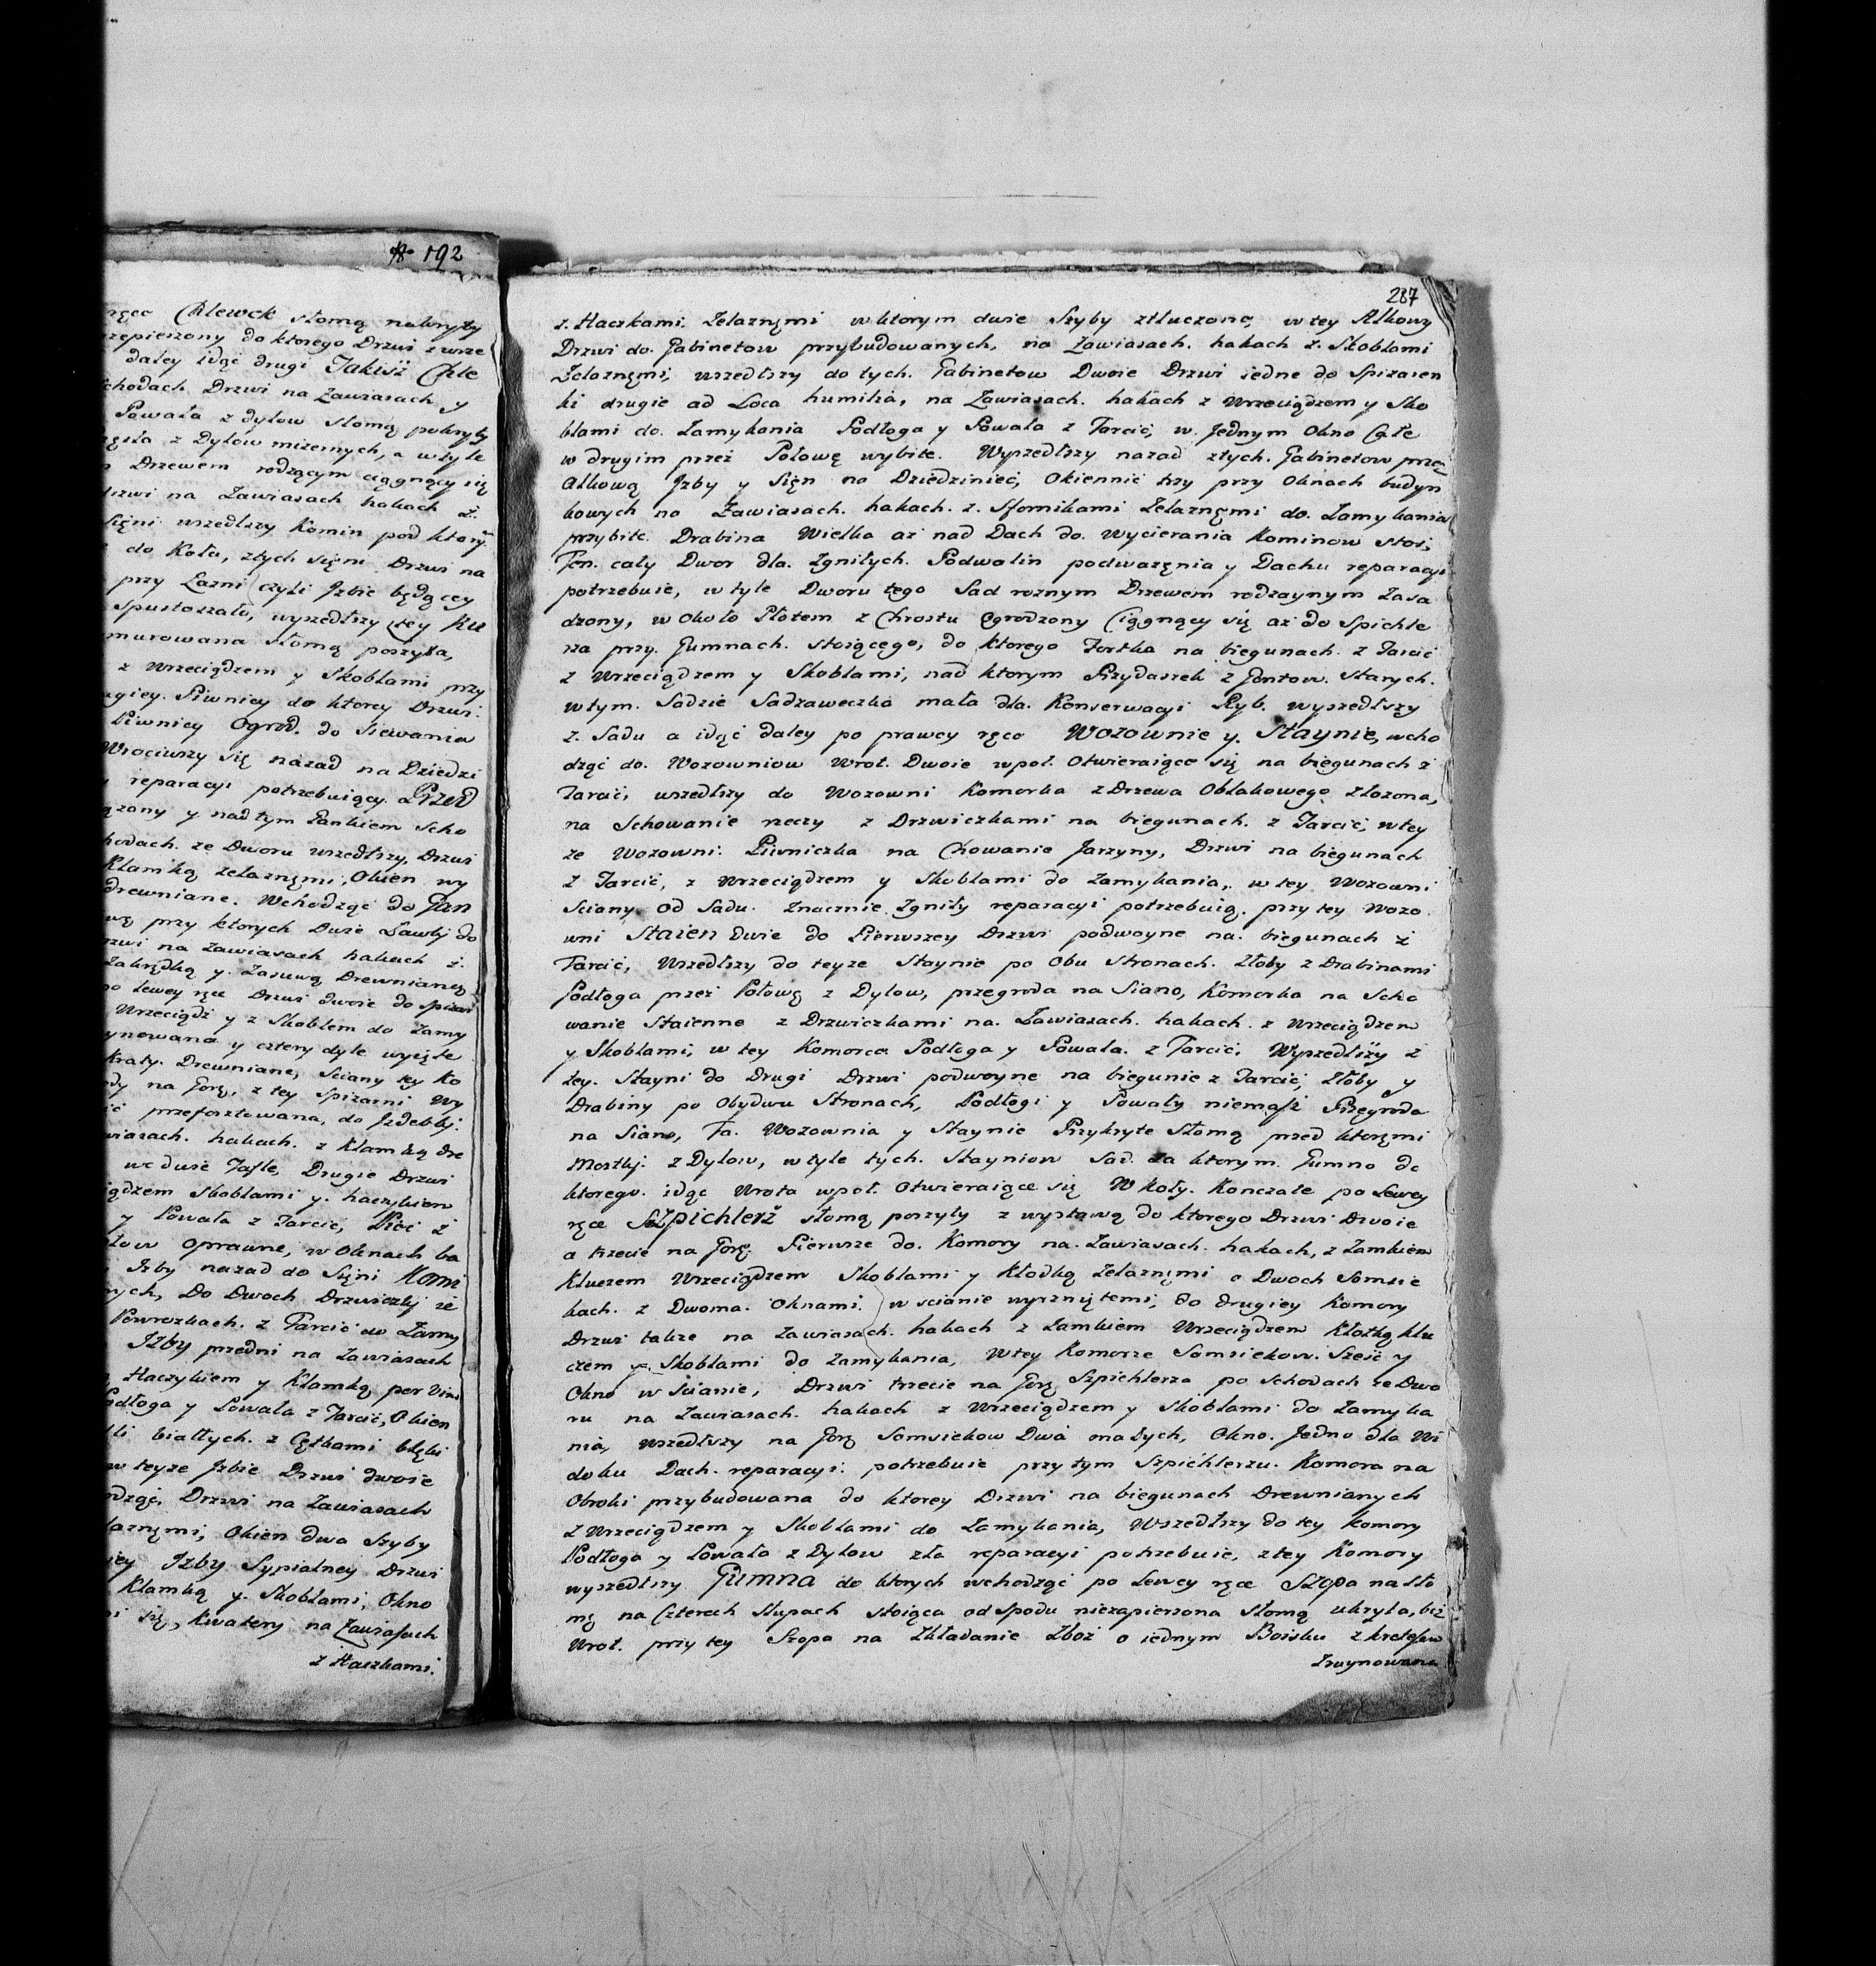 192
ręce Chlewek słomą nakryty
rzepierzony do ktorego Drzwi z wrze
daley idąc drugi Jakiśż Chle
chodach Drzwi na Zawiasach y
Powała z dylow słomą pokryty
z Dylow mizernych, a w tyle
Drzewem rodzącym ciągnący się
drzwi na Zawiasach hakach z.
Sięni wszedłszy Komin pod ktory
do Koła, z tych sięni Drzwi na
przy Łazni czyli Jzbie będącey
spustoszało, wyszedłszy tey Ku
murowana słomą poszyta,
z wrzeciądzem y Skoblami przy
ugiey. Piwnicy do ktorey Drzwi.
Piwnicy Ogrod. do Siewania
Wrociwszy się nazad na Dziedzi
reparacyi potrzebuiący. Przed
ązony y nad tym Gankiem Scho
hodach. ze Dworu wszedłszy, Drzwi
Klamką żelaznęmi, Okien wy
drewniane. Wchodząc do Gan
wę przy ktorych Dwie Ławki do
rzwi na Zawiasach hakach z.
Zakrędką y. Zasuwą Drewnianą
po lewey ręce Drzwi dwoie do spizar
Wrzeciądz y z Skoblem do Zamy
ynowana y cztery dyle wyięte
Kraty. Drewniane, Sciany tey Ko
dy na Gorę, z tey spizarni Wy
ić przeforsztowana, do Jzdebki.
wiasach. hakach. z Klamką dre
we dwie Tafle, Drugie Drzwi
iądzem Skoblami y. haczykiem
y Powała z Tarcic, Piec z
łow oprawne, w Oknach ba
Jzby nazad do Sięni Komi
nych, Do Dwoch Drzwiczki że
Powrozkach. z Tarcic do Zamy
Jzby przedni na Zawiasach
Haczykiem y Klamką per Vim
Podłoga y Powała z Tarcic, Okien
li białych. z Cętkami błęki
w teyze Jzbie Drzwi dwoie
odząc, Drzwi na Zawiasach
laznęmi, Okien dwa Szyby
iey Jzby Sypialney Drzwi
Klamką y. Skoblami, Okno
i się, Kwatery na Zawiasach
z Haczkami.
287
z. Haczkami. Zelaznęmi w ktorym dwie Szyby ztłuczone, w tey Alkowy
Drzwi do. Gabinetow przybudowanych, na Zawiasach. hakach z. Skoblami
Zelaznęmi, wszedłszy do tych. Gabinetow Dwoie Drzwi iedne do Spizaren
ki drugie ad Loca humilia, na Zawiasach. hakach z Wrzeciądzem y Sko
blami do. Zamykania Podłoga y Powała z Tarcic, w. Jednym Okno Całe
w drugim przez Połowę wybite. Wyszedłszy nazad z tych. Gabinetow przez
Alkową Jzby y Sięn na Dziedziniec, Okiennic trzy przy Oknach budyn
kowych na Zawiasach. hakach. z. Sfornikami Zelaznęmi do. Zamykania
przybite. Drabina Wielka aż nad Dach do. Wycierania Kominow stoi,
Ten. cały Dwor dla. Zgniłych. Podwalin podważęnia y Dachu reparacyi
potrzebuie, w tyle Dworu tego Sad roznym Drzewem rodzaynym Zasa
dzony, w około Płotem z Chrostu Ogrodzony Ciągnący się aż do Spichle
rza przy. Gumnach. stoiącego, do ktorego Fortka na biegunach. z Tarcic
z Wrzeciądzem y Skoblami, nad ktorym Przydaszek z Gontow. Starych.
w tym. Sadzie Sadzaweczka mała dla. Konserwacyi Ryb. wyszedłszy
z. Sadu a idąc daley po prawey ręce Wozownie y. Staynie, wcho
dząc do. Wozowniow Wrot. Dwoie wpoł. Otwieraiące się na biegunach z
Tarcic, wszedłszy do Wozowni Komorka z Drzewa Obłakowego złozona,
na Schowanie rzeczy z Drzwiczkami na biegunach. z Tarcic, w tey
ze Wozowni. Piwniczka na Chowanie Jarzyny, Drzwi na biegunach
z Tarcic, z Wrzeciądzem y Skoblami do Zamykania, w tey Wozowni
Sciany od Sadu. Znacznie Zgniły reparacyi potrzebuią. przy tey Wozo
wni Staien dwie do Pierwszey Drzwi podwoyne na. biegunach z
Tarcic, Wszedłszy do teyze Staynie po Obu Stronach. Złoby z Drabinami
Podłoga przez Połowę z Dylow, przegroda na Siano, Komorka na Scho
wanie Staienne z Drzwiczkami na. Zawiasach. hakach. z Wrzeciądzem
y Skoblami, w tey Komorce Podłoga y Powała. z Tarcic. Wyszedłszy z
tey. Stayni do Drugi Drzwi podwoyne na biegunie z Tarcic, Złoby y
Drabiny po Obydwu Stronach, Podłogi y Powały niemasz Przęgroda
na Siano, Ta. Wozownia y Staynie Przykryte Słomą przed ktoręmi
Mostki. z Dylow, w tyle tych. Stayniow Sad. za ktorym. Gumno do
ktorego. idąc Wrota wpoł. Otwieraiące się W Koły. Konczate po Lewey
ręce Szpichlerz słomą poszyty z wystawą do ktorego Drzwi Dwoie
a trzecie na Gorę. Pierwsze do. Komory na. Zawiasach. hakach, z Zamkiem
Kluczem Wrzeciądzem Skoblami y Kłodką Zelaznęmi o Dwoch Somsie
kach. z Dwoma. Oknami. w scianie wyrzniętemi, do drugiey Komory
Drzwi takze na Zawiasach. hakach z Zamkiem Wrzeciądzem Kłotką klu
czem y. Skoblami do Zamykania, W tey Komorze Somsiekow. Szesc y
Okno w Scianie, Drzwi trzecie na Gorę Szpichlerza po Schodach ze Dwo
ru na Zawiasach. hakach z Wrzeciądzem y Skoblami do Zamyka
nia, wszedłszy na Gorę Somsiekow Dwa małych, Okno. Jedno dla Wi
doku Dach. reparacyi. potrzebuie przy tym Szpichlerzu. Komora na
Obroki przybudowana do ktorey Drzwi na biegunach Drewnianych
z Wrzeciądzem y Skoblami do Zamykania, Wszedłszy do tey Komory
Podłoga y Powała z Dylow zła reparacyi potrzebuie, z tey Komory
wyszedłszy Gumna do ktorych wchodząc po Lewey ręce Szopa na sło
mę na Czterech Słupach stoiąca od spodu niezapierzona słomą ukryta, bez
Wrot. przy tey Szopa na Składanie Zboz o iednym Boisku z kretesem
Zruynowana